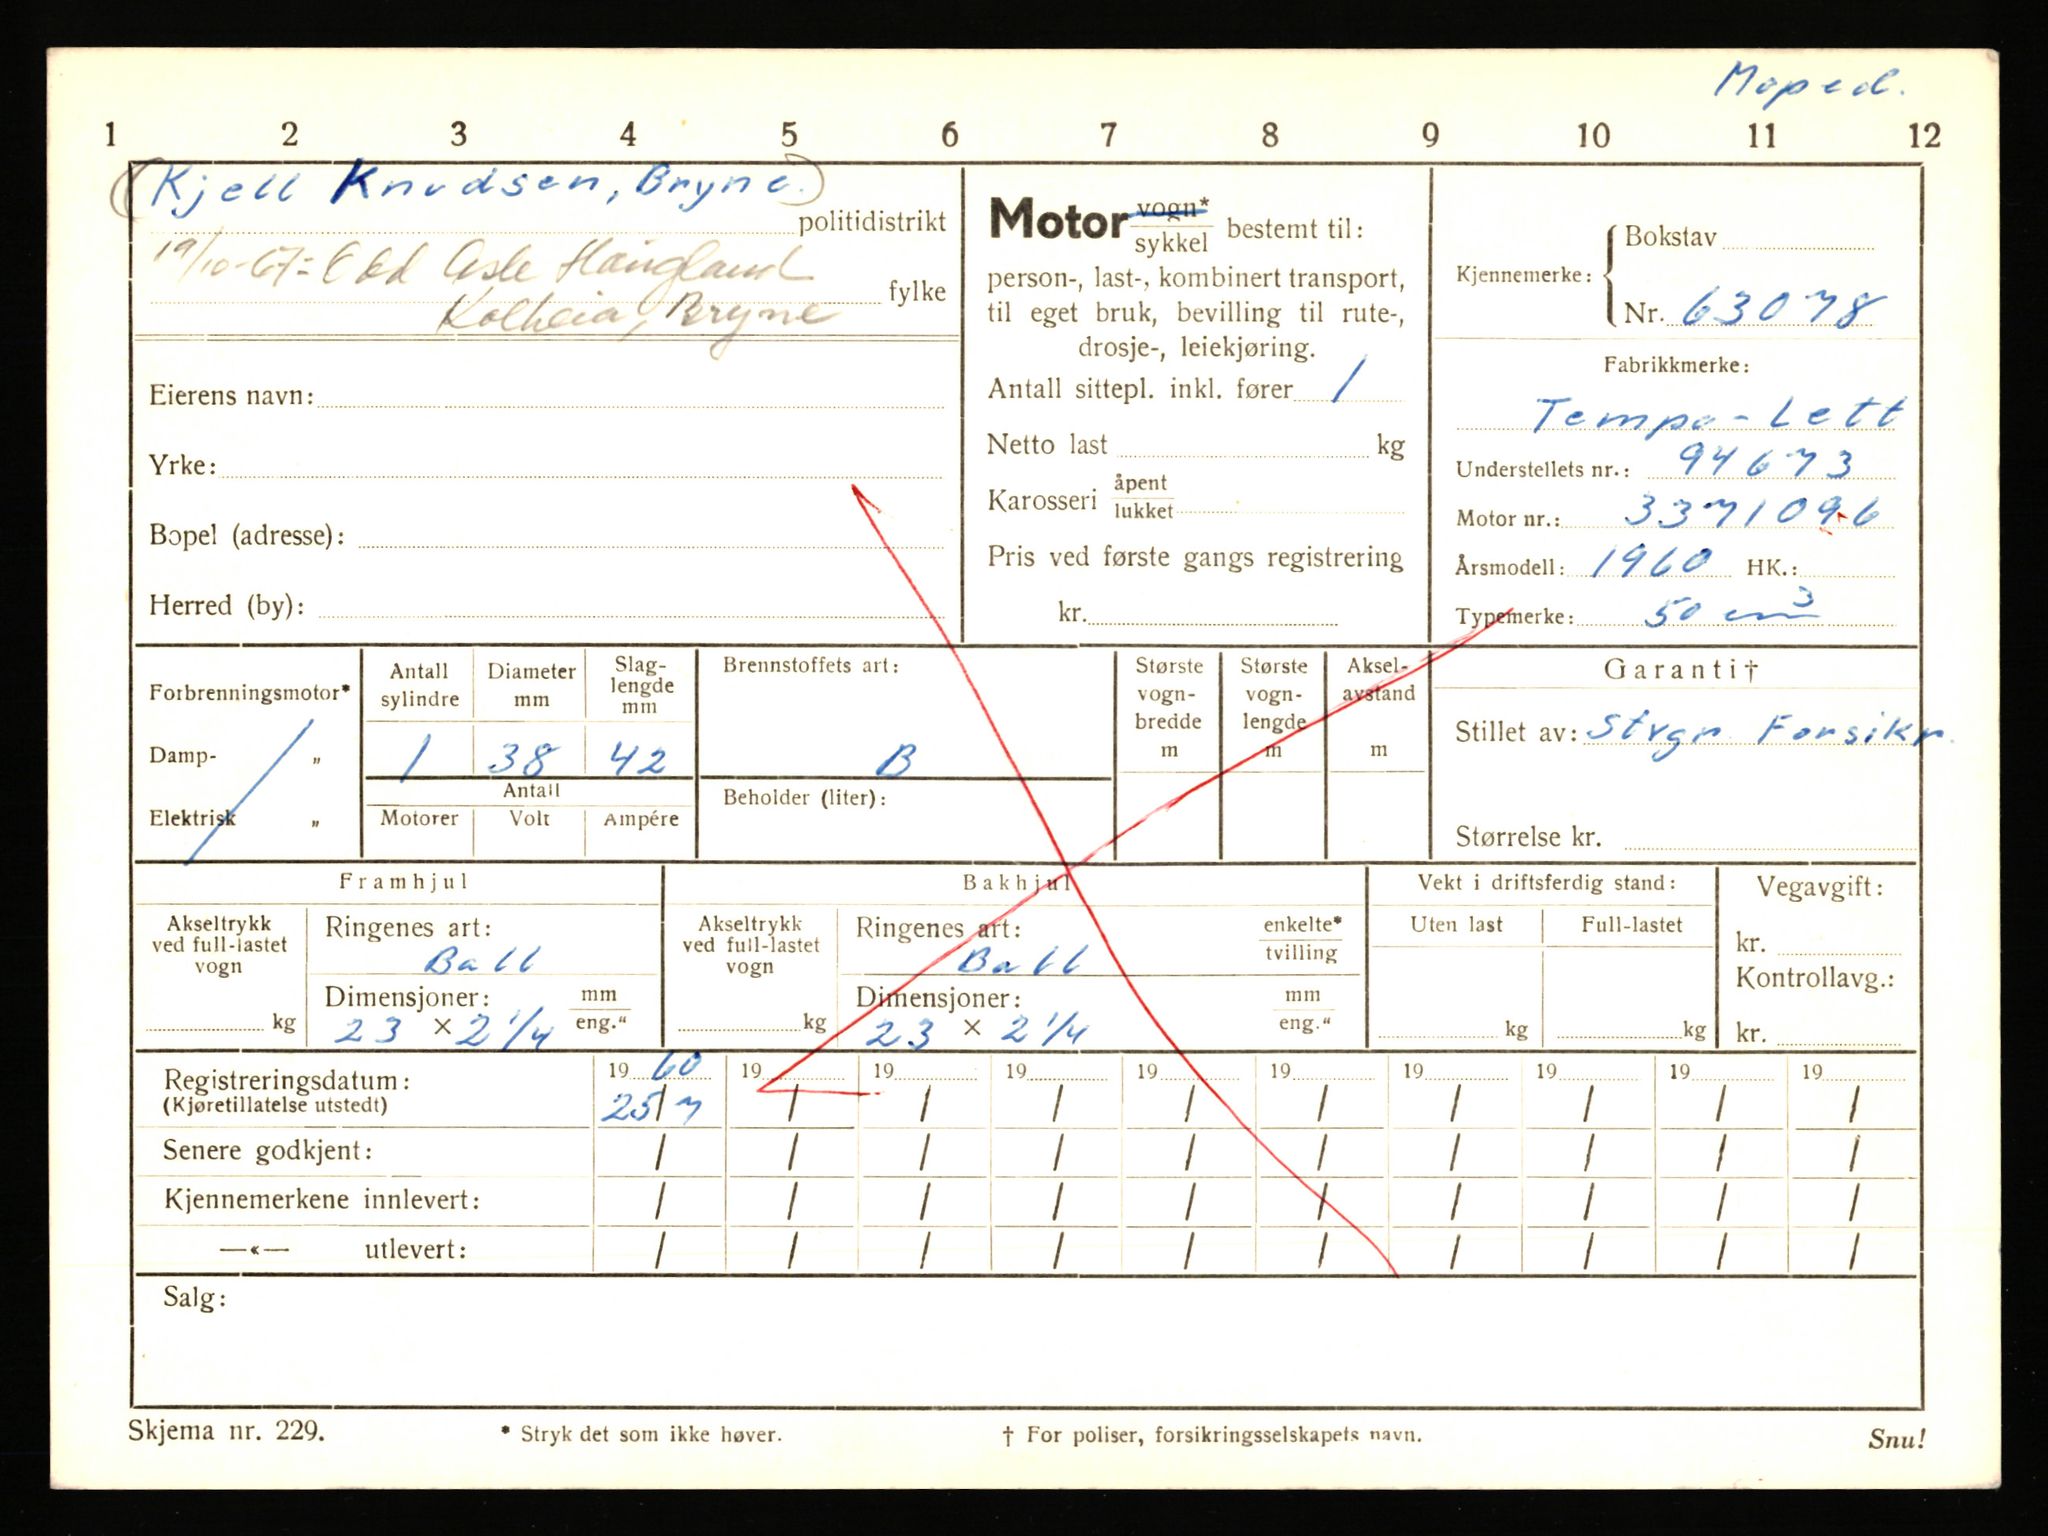 Moped.
1 2 3 4 5 6 7 8 9 10 11 12
(Kjell Knudsen, Bryne.)
politidistrikt
19/10-67= Odd Asle Haugland
fylke
Kolheia, Bryne
Eierens navn:
Yrke:
Bopel (adresse):
Herred (by):
Motor vogn*
sykkel bestemt til:
person-, last-, kombinert transport,
til eget bruk, bevilling til rute-,
drosje-, leiekjøring.
Antall sittepl. inkl. fører 1
Netto last kg
Karosseri åpent
lukket
Pris ved første gangs registrering
kr.
Kjennemerke: { Bokstav
Nr. 63078
Fabrikkmerke:
Tempo-Lett
Understellets nr.: 94673
Motor nr.: 3371096
Årsmodell: 1960 HK.:
Typemerke: 50 cm³
Forbrenningsmotor*
Damp- „
Elektrisk „
Antall sylindre Diameter mm Slag-lengde mm
1 38 42
Antall
Motorer Volt Ampére
Brennstoffets art:
B
Beholder (liter):
Største vogn-bredde m
Største vogn-lengde m
Aksel-avstand m
Garanti†
Stillet av: Stvgr Forsikr.
Størrelse kr.
Framhjul
Akseltrykk
ved full-lastet
vogn
kg
Ringenes art:
Ball
Dimensjoner: mm
23 × 2 1/4 eng.“
Bakhjul
Akseltrykk
ved full-lastet
vogn
kg
Ringenes art: enkelte*
Ball tvilling
Dimensjoner: mm
23 × 2 1/4 eng.“
Vekt i driftsferdig stand:
Uten last Full-lastet
kg kg
Vegavgift:
kr.
Kontrollavg.:
kr.
Registreringsdatum: 19 60 19 19 19 19 19 19 19 19 19
(Kjøretillatelse utstedt) 25/7 / / / / / / / / /
Senere godkjent: / / / / / / / / / /
Kjennemerkene innlevert: / / / / / / / / / /
—«— utlevert: / / / / / / / / / /
Salg:
Skjema nr. 229. * Stryk det som ikke høver. † For poliser, forsikringsselskapets navn. Snu!